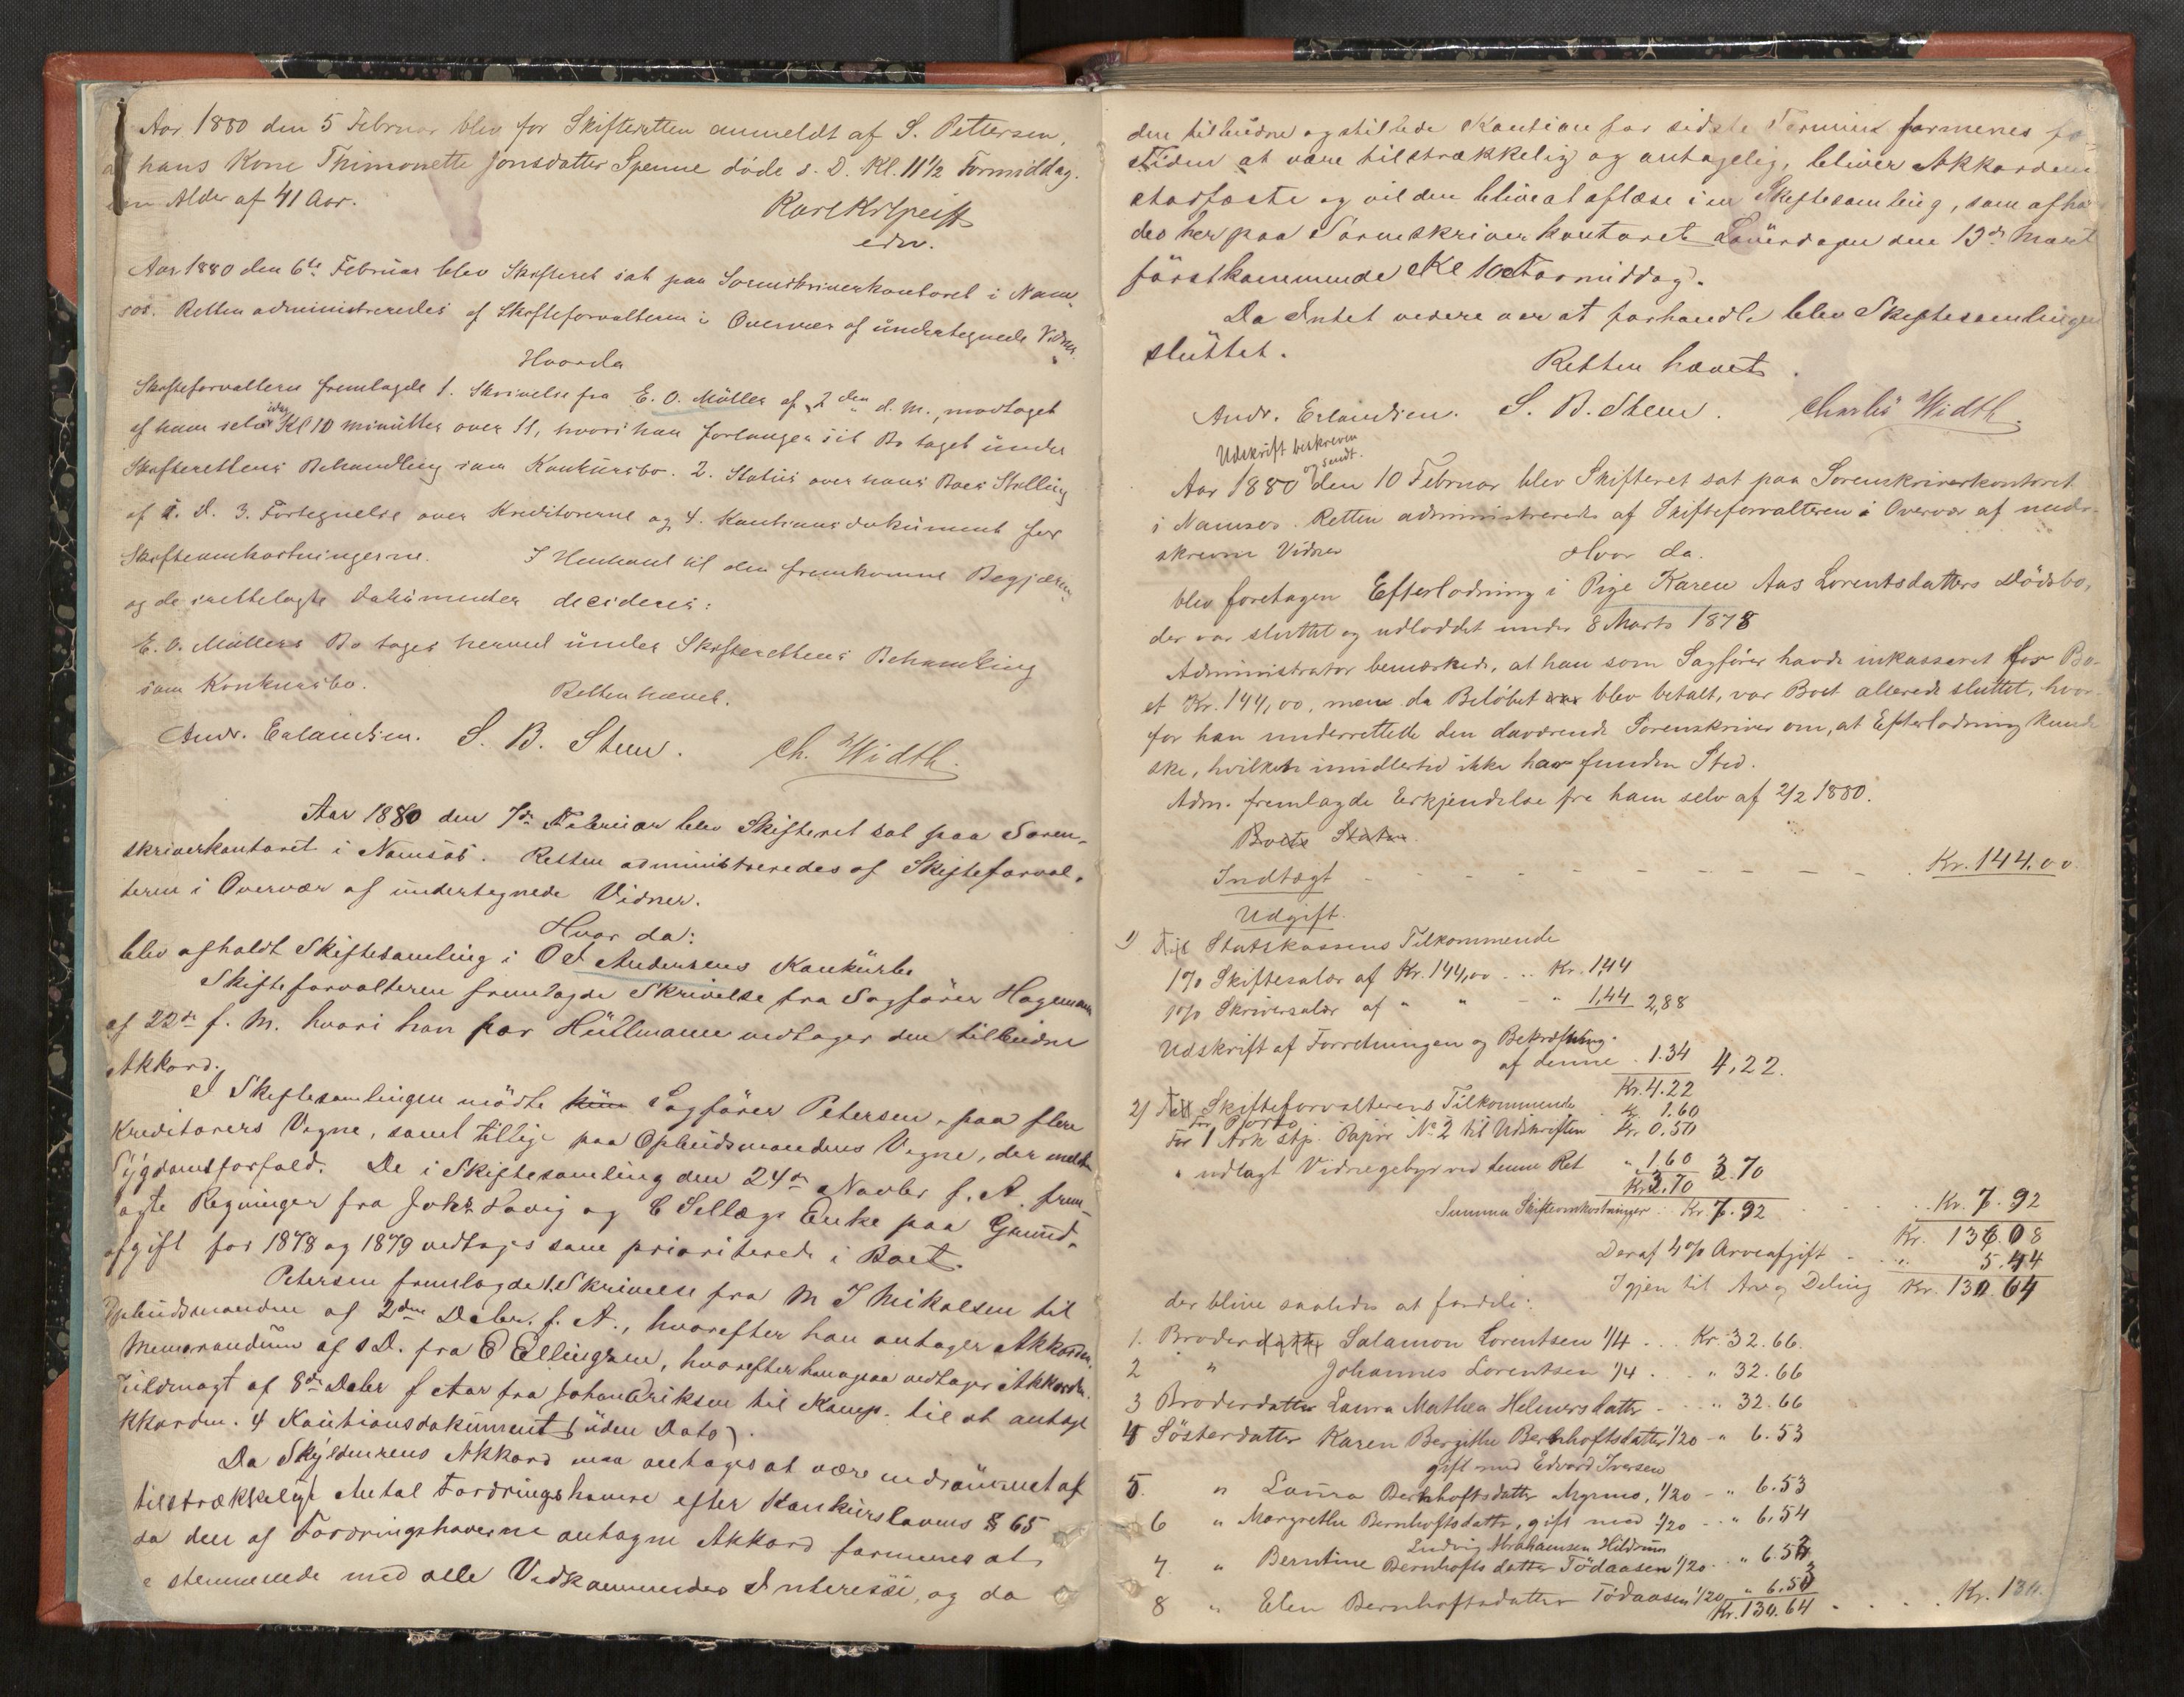 Aar 1880 den 5 Februar blev for Skifteretten anmeldt af S. Pettersen,
at hans Kone Thimonette Jonsdatter Spenne døde s. D. Kl. 11½ Formiddag.
en Alder af 41 Aar.
edv.
Aar 1880 den 6te Februar blev Skifteret sat paa Sorenskriverkontoret i Nam-
sos. Retten administreredes af Skifteforvalteren i Overvær af undertegnede Vidner.
Hvorda
Skifteforvalteren fremlagde 1. Skrivelse fra E. O. Müller af 2den d. M., modtaget
af ham selv idag Kl 10 minutter over 11, hvori han forlanger sit Bo taget under
Skifterettens Behandling som Konkursbo. 2. Status over hans Boes Stilling
af s. D. 3. Fortegnelse over Kreditorerne og 4. Kautionsdokument for
Skifteomkostningerne. I Henhold til den fremkomne Begjæring
og de irettelagte Dokumenter decideres:
E. O. Müllers Bo tages herved under Skifterettens Behandling
som Konkursbo. Retten hævet.
Andr. Erlandsen. S. B. Steen. Ch. Width.
Aar 1880 den 7de Februar blev Skifteret sat paa Soren-
skriverkontoret i Namsos. Retten administreredes af Skifteforval-
teren i Overvær af undertegnede Vidner.
Hvor da:
blev afholdt Skiftesamling i O J Andersens Konkursbo
Skifteforvalteren fremlagde Skrivelse fra Sagfører Hagemann
af 22de f. M. hvori han for Hüllmann vedtager den tilbudne
Akkord.
I Skiftesamlingen mødte kun Sagfører Petersen, paa flere
Kreditorers Vegne, samt tillige paa Opbudsmandens Vegne, der meldte
Sygdomsforfald. De i Skiftesamling den 24de Novbr f. A. frem-
lagte Regninger fra Johs Havig og E Sellægs Enke paa Grund-
afgift for 1878 og 1879 vedtages som prioriterede i Boet.
Petersen fremlagde 1. Skrivelse fra M J Mikalsen til
Opbudsmanden af 2den Debr. f. A., hvorefter han antager Akkorden.
Memorandum af s D. fra E Ellingsen, hvorefter han ogsaa vedtager Akkorden.
Fuldmagt af 8de Debr f Aar fra Johan Eriksen til Kamp. til at antage
Akkorden. 4 Kautionsdokument (uden Dato).
Da Skyldnerens Akkord maa antages at være indrømmet af
tilstrækkeligt Antal Fordringshavere efter Konkurslovens § 65
da den af Fordringshaverne antagne Akkord formenes at
stemmende med alle Vedkommendes Interesse, og da
den tilbudne og stillede Kaution for sidste Termin formenes
Tiden at være tilstrækkelig og antagelig, bliver Akkorden
stadfæste og vil den blive at oplæse i en Skiftesamling, som afhol
des her paa Sorenskriverkontoret Løverdagen den 13de Marts
førstkommende Kl 10 Formiddag.
Da Intet videre var at forhandle blev Skiftesamlingen
sluttet.
Retten hævet.
Andr. Erlandsen. S. B. Steen. Charles Width.
Udskrift beskreven
og sendt.
Aar 1880 den 10 Februar blev Skifteret sat paa Sorenskriverkontoret
i Namsos. Retten administreredes af Skifteforvalteren i Overvær af under-
skrevne Vidner Hvor da.
blev foretagen Efterlodning i Pige Karen Aas Lorentsdatters Dødsbo,
der var sluttet og udloddet under 8 Marts 1878
Administrator bemærkede, at han som Sagfører havde inkasseret for Bo-
et Kr. 144,00, men da Beløbet var blev betalt, var Boet allerede sluttet, hvor-
for han underrettede den daværende Sorenskriver om, at Efterlodning kunde
ske, hvilket imidlertid ikke har funden Sted.
Adm. fremlagde Erkjendelse fra ham selv af 2/2 1880.
Boets Status.
Indtægt - - - - - - - - - - Kr. 144.00.
Udgift.
1) Statskassens Tilkommende
1% Skiftesalær af Kr. 144,00 .. Kr. 1,44
1% Skriversalær af " " - " 1,44 2,88
Udskrift af Forretningen og Bekræftning
af denne . 1.34 4,22.
Kr. 4.22
2) Skifteforvalterens Tilkommende
For Porto Kr. 1.60
For 1 Ark stp. Papir No 2 til Udskriften Kr. 0.50
" udlagt Vidnegebyr ved denne Ret " 1,60 3.70
Kr 3.70
Summa Skifteomkostninger . Kr. 7.92 . . . Kr. 7.92
Kr. 136.08
Deraf 4% Arveafgift - " 5.44
Igjen til Arv og Deling Kr. 130.64
der blive saaledes at fordele:
1. Broder Salamon Lorentsen 1/4 ... Kr. 32.66.
2 " Johannes Lorentsen 1/4 . . " 32.66
3 Broderdatter Laura Mathea Helmersdatter - .. " 32.66
4 Søsterdatter Karen Bergithe Bernhoftsdatter 1/20 - " 6.53
gift med Edvard Iversen
5. " Laura Bernhoftsdatter Myrmo, 1/20 - " 6.53
6 " Margrethe Bernhoftsdatter, gift med 1/20 - " 6.54
Ludvig Abrahamsen Hildrum
7. " Berntine Bernhoftsdatter Tødaasen 1/20 . " 6.53
8 " Elen Bernhoftsdatter Tødaasen 1/20 " 6.53
Kr. 130.64 . . . . Kr. 130.